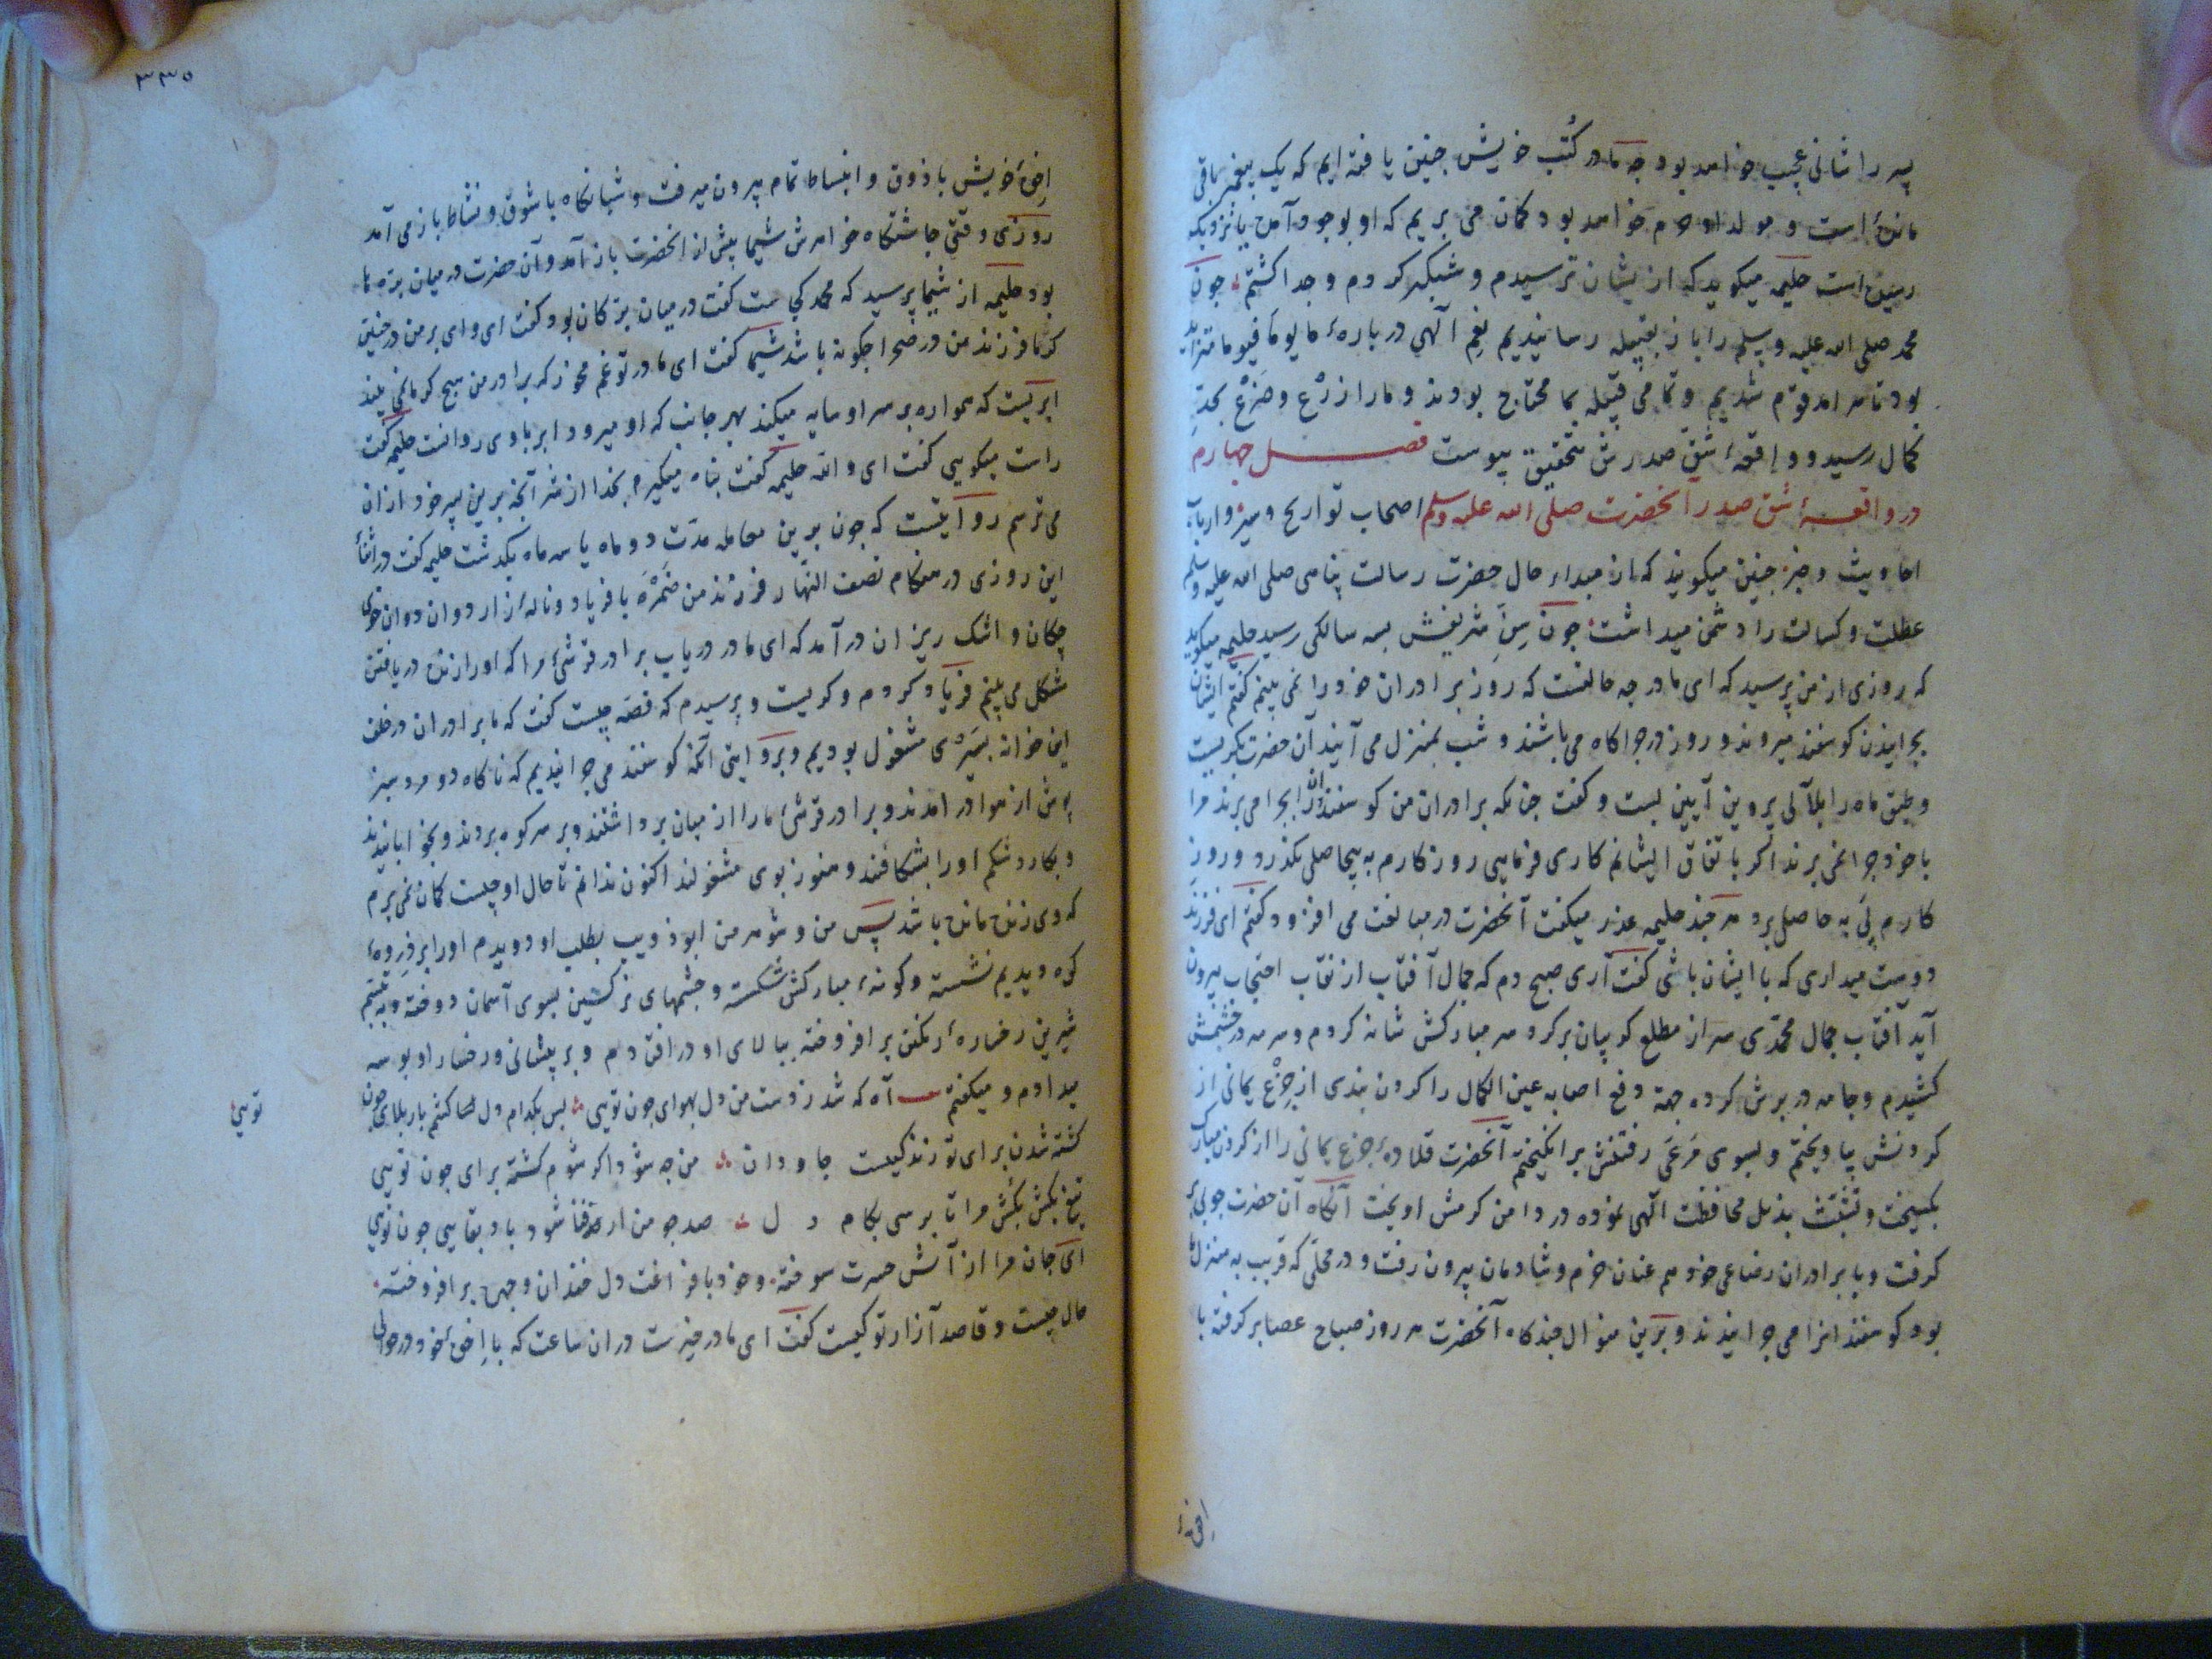 پسر را شانی عجیب خواهد بود چه ما در کُتُب خویش چنین یافته ایم که یک پیغمبر باقی
مانده است و مولد او حرم خواهد بود کمان می بریم که او بوجود آمده یا نزدیک
رسیده است حلیمه میکوید که از یشان ترسیدم و شبکیر کردم و جدا کشتم چون
محمد صلی الله علیه وسلم را باز بقبیله رسانیدیم نِعَم آلهی در بارهٔ ما یوماً فیوما متزاید
بود تا سرآمد قوم شدیم و تمامی قبیله بما محتاج بودند و ما را از زَرْع و ضَرْع بحدِّ
کمال رسید و واقعهٔ شق صدرش بتحقیق پیوست فصل چهارم
در واقعهٔ شق صدر آنحضرت صلی الله علیه وسلم اصحاب تواریخ و سیر و ارباب
احادیث و خبر چنین میکویند که از مبداء حال حضرت رسالت پناهی صلی الله علیه وسلم
عطلت و کسالت را دشمن میداشت چون سِنِّ شریفش بسه سالکی رسید حلیمه میکوید
که روزی از من پرسید که ای مادر چه حالتست که روز برادران خود را نمی بینم کفتم ایشان
بچرانیدن کوسفند میروند و روز در چراکاه می باشند و شب بمنزل می آیند آن حضرت بکریست
و طبق ماه را بلآلی پروین آیین بست و کفت چنانکه برادران من کوسفندان را بچرا می برند مرا
با خود چرا نمی برند اکر باتفاق ایشانم کاری فرمایی روزکارم به بیحاصلی نکذرد و روز
کارم پی به حاصل برد هرچند حلیمه عذر میکفت آنحضرت در مبالغت می افزود کفتم ای فرزند
دوست میداری که با ایشان باشی کفت آری صبح دم که جمال آفتاب از نقاب احتجاب بیرون
آید آفتاب جمال محمدی سر از مطلع کریبان برکرد سر مبارکش شانه کردم و سرمه در چشمش
کشیدم و جامه در برش کرده جهة دفع اصابه عین الکمال را کردن بندی از جِزْع یمانی از
کردنش بیاویختم و بسوی مَرعَی رفتنش برانکیختم آنحضرت قلادهٔ جزع یمانی را از کردن مبارک
بکسیخت و تشبّث بذیل محافظت الهی نموده در دامن کرمش اویخت آنکاه آن حضرت چوبی بر
کرفت و با برادران رضاعی خود هم عنان خرم و شادمان بیرون رفت و در محلی که قریب به منزل ما
بود کوسفندانرا می چرانیدند و برین منوال چندکاه آنحضرت هر روز صباح عصا برکرفته با
اِخوهٔ
٣٣٥
اِخوهٔ خویش با ذوق و انبساط تمام بیرون میرفت و شبانکاه با شوق و نشاط باز می آمد
روزی وقتی چاشتکاه خواهرش شیما پیش از آنحضرت باز آمد و آن حضرت در میان بره ها
بود حلیمه از شیما پرسید که محمد کجاست کفت در میان بزکان بود کفت ای وای بر من در چنین
کرما فرزند من در صحرا چکونه باشد شیما کفت ای مادر تو غم مخور که برادر من هیچ کرما نمی بیند
ابریست که همواره بر سر او سایه میکند بهر جانب که او میرود ابر با وی روانست حلیمه کفت
راست میکویی کفت ای والله حلیمه کفت پناه میکیرم بخدا از شر آنچه برین پسر خود از ان
می ترسم روایتست که چون برین معامله مدت دو ماه یا سه ماه بکذشت حلیمه کفت در اثنای
این روزی در هنکام نصف النهار فرزند من ضَمْرَه با فریاد و نالهٔ زار دوان دوان خوی
چکان و اشک ریزان در آمد که ای مادر دریاب برادر قرشیٔ مرا که او را زنده دریافتن
مشکل می بینم فریاد کردم و کریست و پرسیدم که قصه چیست کفت که ما برادران در خلف
این خانه بسَیَرهٔ مشغول بودیم و بروایتی آنکه کوسفند می چرانیدیم که ناکاه دو مرد سبز
پوش از هوا در آمدند و برادر قرشی ما را از میان برداشتند و بر سر کوه بردند و بخوابانیدند
و بکارد شکم او را بشکافتند و هنوز بوی مشغولند اکنون ندانم تا حال او چیست کمان نمی برم
که وی زنده مانده باشد پس من و شوهر من ابو ذویب بطلب او دویدیم او را بر ذروهٔ
کوه دیدیم نشسته و کونهٔ مبارکش شکسته و چشمهای نرکسین بسوی آسمان دوخته و به تبسم
شیرین رخسارهٔ رنکین برافروخته ببالای او در افتادم و بر پیشانی و رخسار او بوسه
میدادم و میکفتم آه که شد ز دست من دل بهوای چون تویی پس بکدام دل کشم بار بلای چون
تویی
کشته شدن برای تو زندکیست جاودان من چه شود اکر شوم کشته برای چون تویی
تیغ بکش بکُش مرا تا برسی بکام دل صد چو من ار فنا شود باد بقای چون تویی
ای جان مرا از آتش حسرت سوخته و خود با فراغت دل خندان و چهره برافروخته
حال چیست و قاصد آزار تو کیست کفت ای مادر خیرست دران ساعت که با اِخوهٔ خود در حوالی